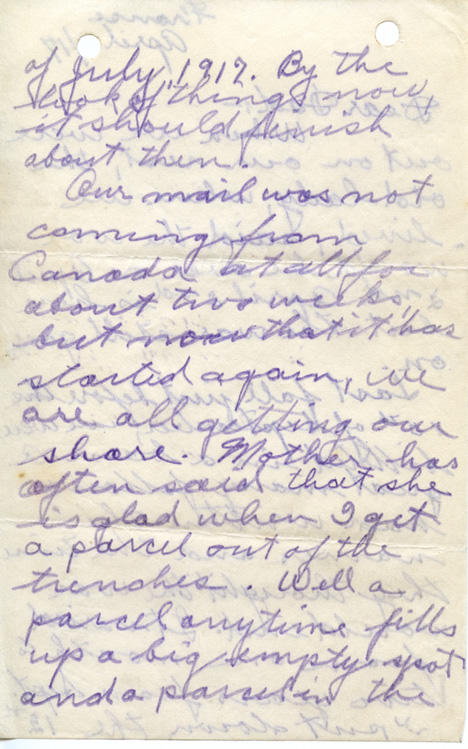 of July, 1917. By the
look of things now,
it should finish
about then.
Our mail was not
coming from
Canada at all for
about two weeks,
but now that it has
started again, we
are all getting our
share. Mother has
often said that she
is glad when I get
a parcel out of the
trenches. Well a
parcel anytime fills
up a big empty spot
and a parcel in the